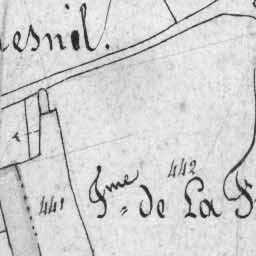 esnil.
442
Fme de La F
441